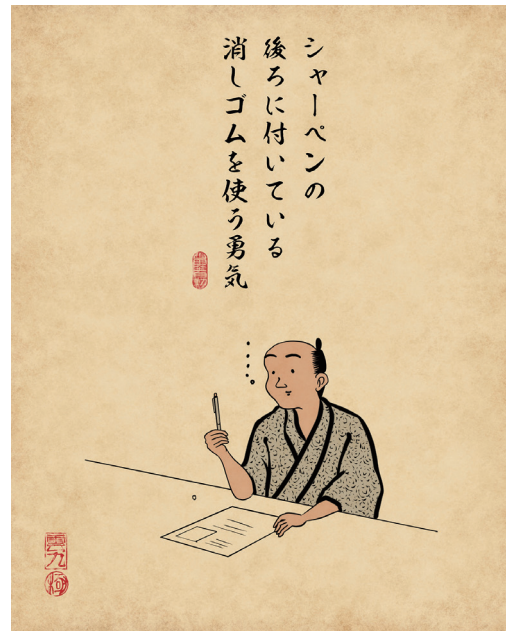 シャーペンの
後ろに付いている
消しゴムを使う勇気